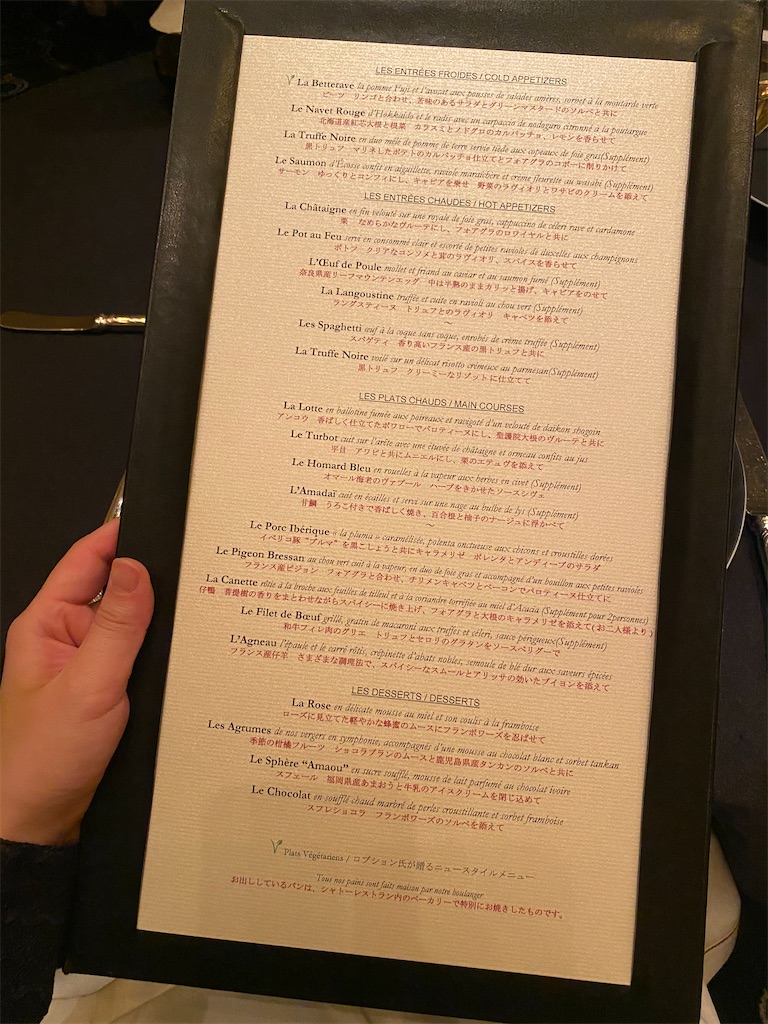 LES ENTRÉES FROIDES / COLD APPETIZERS
La Betterave la pomme Fuji et l'avocat aux pousses de salades amères, sorbet à la moutarde verte
ビーツ リンゴと合わせ、苦味のあるサラダとグリーンマスタードのソルベと共に
Le Navet Rouge d'Hokkaïdo et le radis avec un carpaccio de nodoguro citronné à la poutargue
北海道産紅芯大根と根菜 カラスミとノドグロのカルパッチョ、レモンを香らせて
La Truffe Noire en duo mêlé de pomme de terre servie tiède aux copeaux de foie gras(Supplément)
黒トリュフ マリネしたポテトのカルパッチョ仕立てとフォアグラのコポーに削りかけて
Le Saumon d'Écosse confit en aiguillette, raviole maraîchère et crème fleurette au wasabi (Supplément)
サーモン ゆっくりとコンフィにし、キャビアを乗せ 野菜のラヴィオリとワサビのクリームを添えて
LES ENTRÉES CHAUDES / HOT APPETIZERS
La Châtaigne en fin velouté sur une royale de foie gras, cappuccino de céleri rave et cardamone
栗 なめらかなヴルーテにし、フォアグラのロワイヤルと共に
Le Pot au Feu servi en consommé clair et escorté de petites ravioles de duxelles aux champignons
ポトフ クリアなコンソメと茸のラヴィオリ、スパイスを香らせて
L'Œuf de Poule mollet et friand au caviar et au saumon fumé (Supplément)
奈良県産リーフマウンテンエッグ 中は半熟のままカリッと揚げ、キャビアをのせて
La Langoustine truffée et cuite en ravioli au chou vert (Supplément)
ラングスティーヌ トリュフとのラヴィオリ キャベツを添えて
～
Les Spaghetti œuf à la coque sans coque, enrobés de crème truffée (Supplément)
スパゲティ 香り高いフランス産の黒トリュフと共に
La Truffe Noire voilé sur un délicat risotto crémeux au parmesan(Supplément)
黒トリュフ クリーミーなリゾットに仕立てて
LES PLATS CHAUDS / MAIN COURSES
La Lotte en ballotine fumée aux poireaux et ravigoté d'un velouté de daikon shogoin
アンコウ 香ばしく仕立てたポワローでバロティーヌにし、聖護院大根のヴルーテと共に
Le Turbot cuit sur l'arête avec une étuvée de châtaigne et ormeau confits au jus
平目 アワビと共にムニエルにし、栗のエテュヴを添えて
Le Homard Bleu en rouelles à la vapeur aux herbes en civet (Supplément)
オマール海老のヴァプール ハーブをきかせたソースシヴェ
L'Amadaï cuit en écailles et servi sur une nage au bulbe de lys (Supplément)
甘鯛 うろこ付きで香ばしく焼き、百合根と柚子のナージュに浮かべて
～
Le Porc Ibérique « la pluma » caramélisée, polenta onctueuse aux chicons et croustilles dorées
イベリコ豚 “プルマ” を黒こしょうと共にキャラメリゼ ポレンタとアンディーブのサラダ
Le Pigeon Bressan au chou vert cuit à la vapeur, en duo de foie gras et acompagné d'un bouillon aux petites ravioles
フランス産ピジョン フォアグラと合わせ、チリメンキャベツとベーコンでバロティーヌ仕立てに
La Canette rôtie à la broche aux feuilles de tilleul et à la coriandre torréfiée au miel d'Acacia (Supplément pour 2personnes)
仔鴨 菩提樹の香りをまとわせながらスパイシーに焼き上げ、フォアグラと大根のキャラメリゼを添えて(お二人様より)
Le Filet de Bœuf grillé, gratin de macaroni aux truffes et céleri, sauce périgueux(Supplément)
和牛フィレ肉のグリエ トリュフとセロリのグラタンをソースペリグーで
L'Agneau l'épaule et le carré rôtis, crépinette d'abats nobles, semoule de blé dur aux saveurs épicées
フランス産仔羊 さまざまな調理法で、スパイシーなスムールとアリッサの効いたブイヨンを添えて
LES DESSERTS / DESSERTS
La Rose en délicate mousse au miel et son coulis à la framboise
ローズに見立てた軽やかな蜂蜜のムースにフランボワーズを忍ばせて
Les Agrumes de nos vergers en symphonie, accompagnés d'une mousse au chocolat blanc et sorbet tankan
季節の柑橘フルーツ ショコラブランのムースと鹿児島県産タンカンのソルベと共に
Le Sphère “Amaou” en sucre soufflé, mousse de lait parfumé au chocolat ivoire
スフェール 福岡県産あまおうと牛乳のアイスクリームを閉じ込めて
Le Chocolat en soufflé chaud marbré de perles croustillante et sorbet framboise
スフレショコラ フランボワーズのソルベを添えて
Plats Végétariens / ロブション氏が贈るニュースタイルメニュー
Tous nos pains sont faits maison par notre boulanger
お出ししているパンは、シャトーレストラン内のベーカリーで特別にお焼きしたものです。